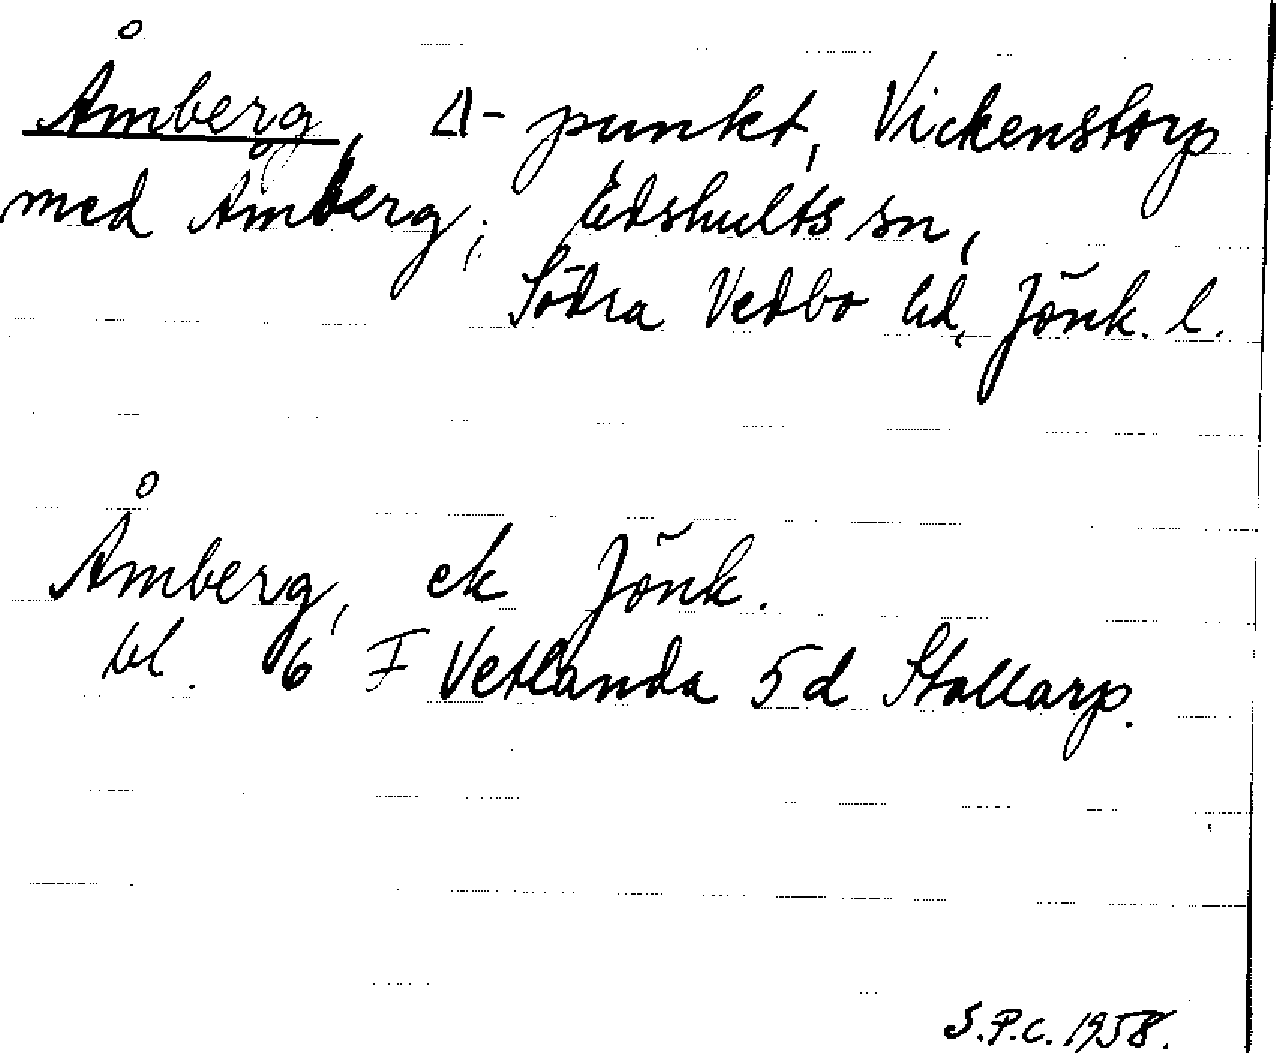 Åmberg, Δ-punkt, Vickenstorp
med Åmberg, Edshults sn,
Södra Vedbo hd, Jönk. l.
Åmberg, ek Jönk.
bl. 6 F Vetlanda 5 d Stallarp.
S.P.C. 1958.